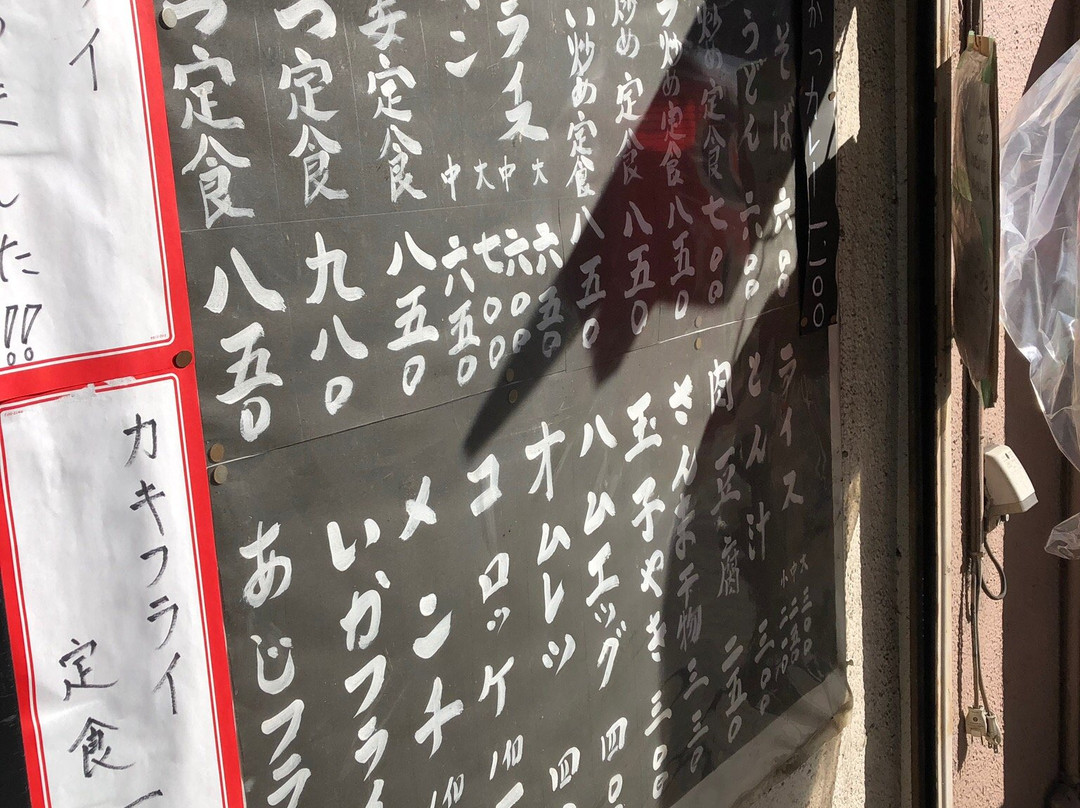 かつカレー
そば 六〇〇
うどん 六〇〇
炒め定食 七〇〇
炒め定食 八五〇
炒め定食 八五〇
い炒め定食 八五〇
ライス 大 六五〇
中 六〇〇
ン 大 七〇〇
中 六五〇
定食 八五〇
つ定食 九八〇
つ定食 八五〇
ライス 大 三〇〇
中 二五〇
小 二〇〇
とん汁 三〇〇
肉豆腐 二五〇
さんま干物 三三〇
玉子やき 三〇〇
ハムエッグ 四〇
オムレツ 四
コロッケ 1個
メンチ 1個
いかフライ
あじフラ
イ
した!!
カキフライ
定食